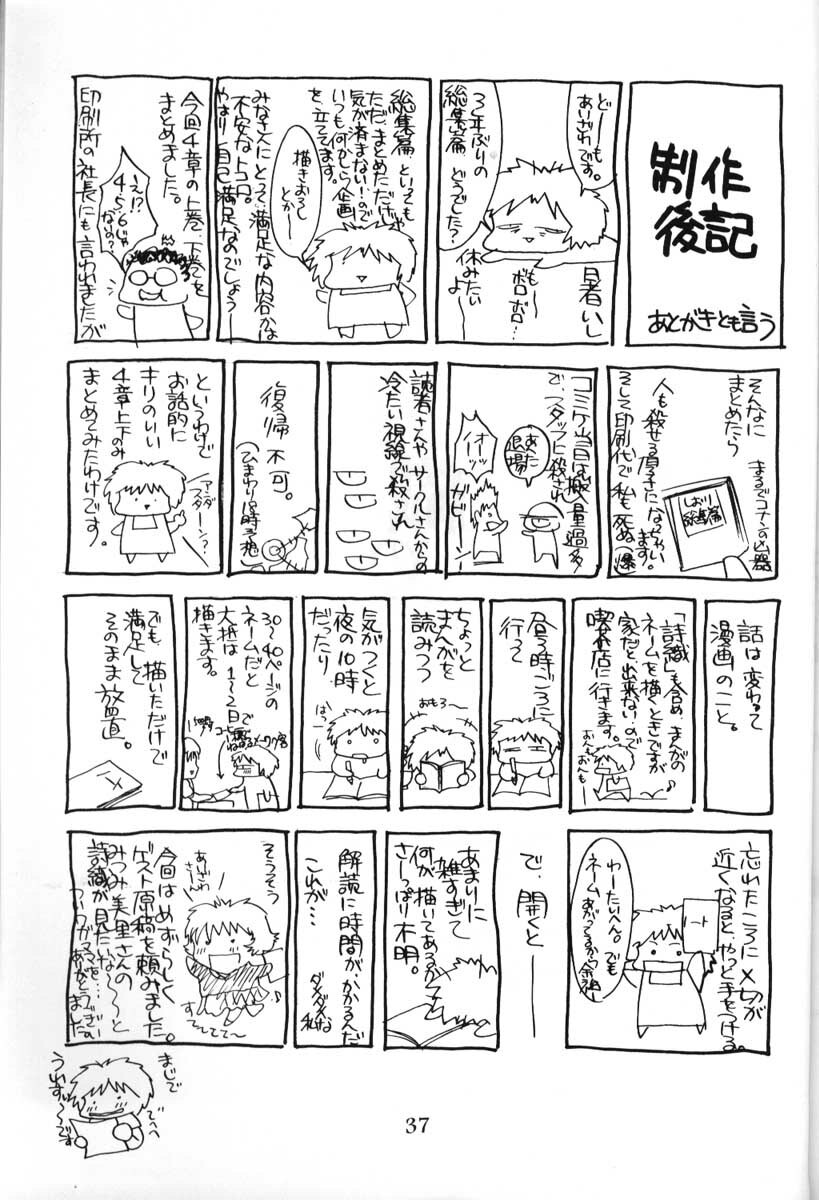 制作
後記
あとがきとも言う
どーも
あいざわです。
3年ぶりの
総集篇、どうでした？
暑いし
もー
ボロボロ…
休みたい
よー
総集篇、といっても
ただまとめただけじゃ
気が済まない！ので
いつも何かしら企画
を立てます。
描きおろし
とかー
みなさんにとって満足な内容かは
不安なトコロ。
やはり自己満足なのでしょうー
今回4章の上巻、下巻を
まとめました。
え!?
4、5、6じゃ
ないの？
印刷所の社長にも言われましたが
そんなに
まとめたら
まるでコナンの凶器
しおり
総集篇
人も殺せる厚手になっちゃい
ます。
そして印刷代で私も死ぬ（爆）
コミケ当日は搬入量過多
で、スタッフに殺され
あんた
退場
オイッ
読者さんやサークルさんからの
冷たい視線で殺され
復帰不可。
というわけで
お話的に
キリのいい
4章上下のみ
まとめてみたわけです。
アンダ
スターン？
話は変わって
漫画のこと。
「詩織」も含め、まんがの
ネームを描くときですが
家だと出来ないので
喫茶店に行きます。
昼3時ごろに
行って
ちょっと
まんがを
読みつつ
おもろ〜
気がつくと
夜の10時
だったり
はっ
30〜40ページの
ネームだと
大抵は1〜2日で
描きます。
でも、描いただけで
満足して
そのまま放置。
忘れたころに〆切が
近くなると、やっと手をつける。
ノート
わーたいへん。でも
ネームあがってるから余裕
で、開くと――
あまりに
雑すぎて
何が描いてあるか
さーっぱり不明。
解読に時間がかかるんだ
これが…
ダメダメな
私
そうそう
あいざわ
さーん
今回はめずらしく
ゲスト原稿を頼みました。
みつみ美里さんの
詩織が見たいな〜〜と
すてててて〜
まじで
うれすぃ〜〜です
でへへ
37